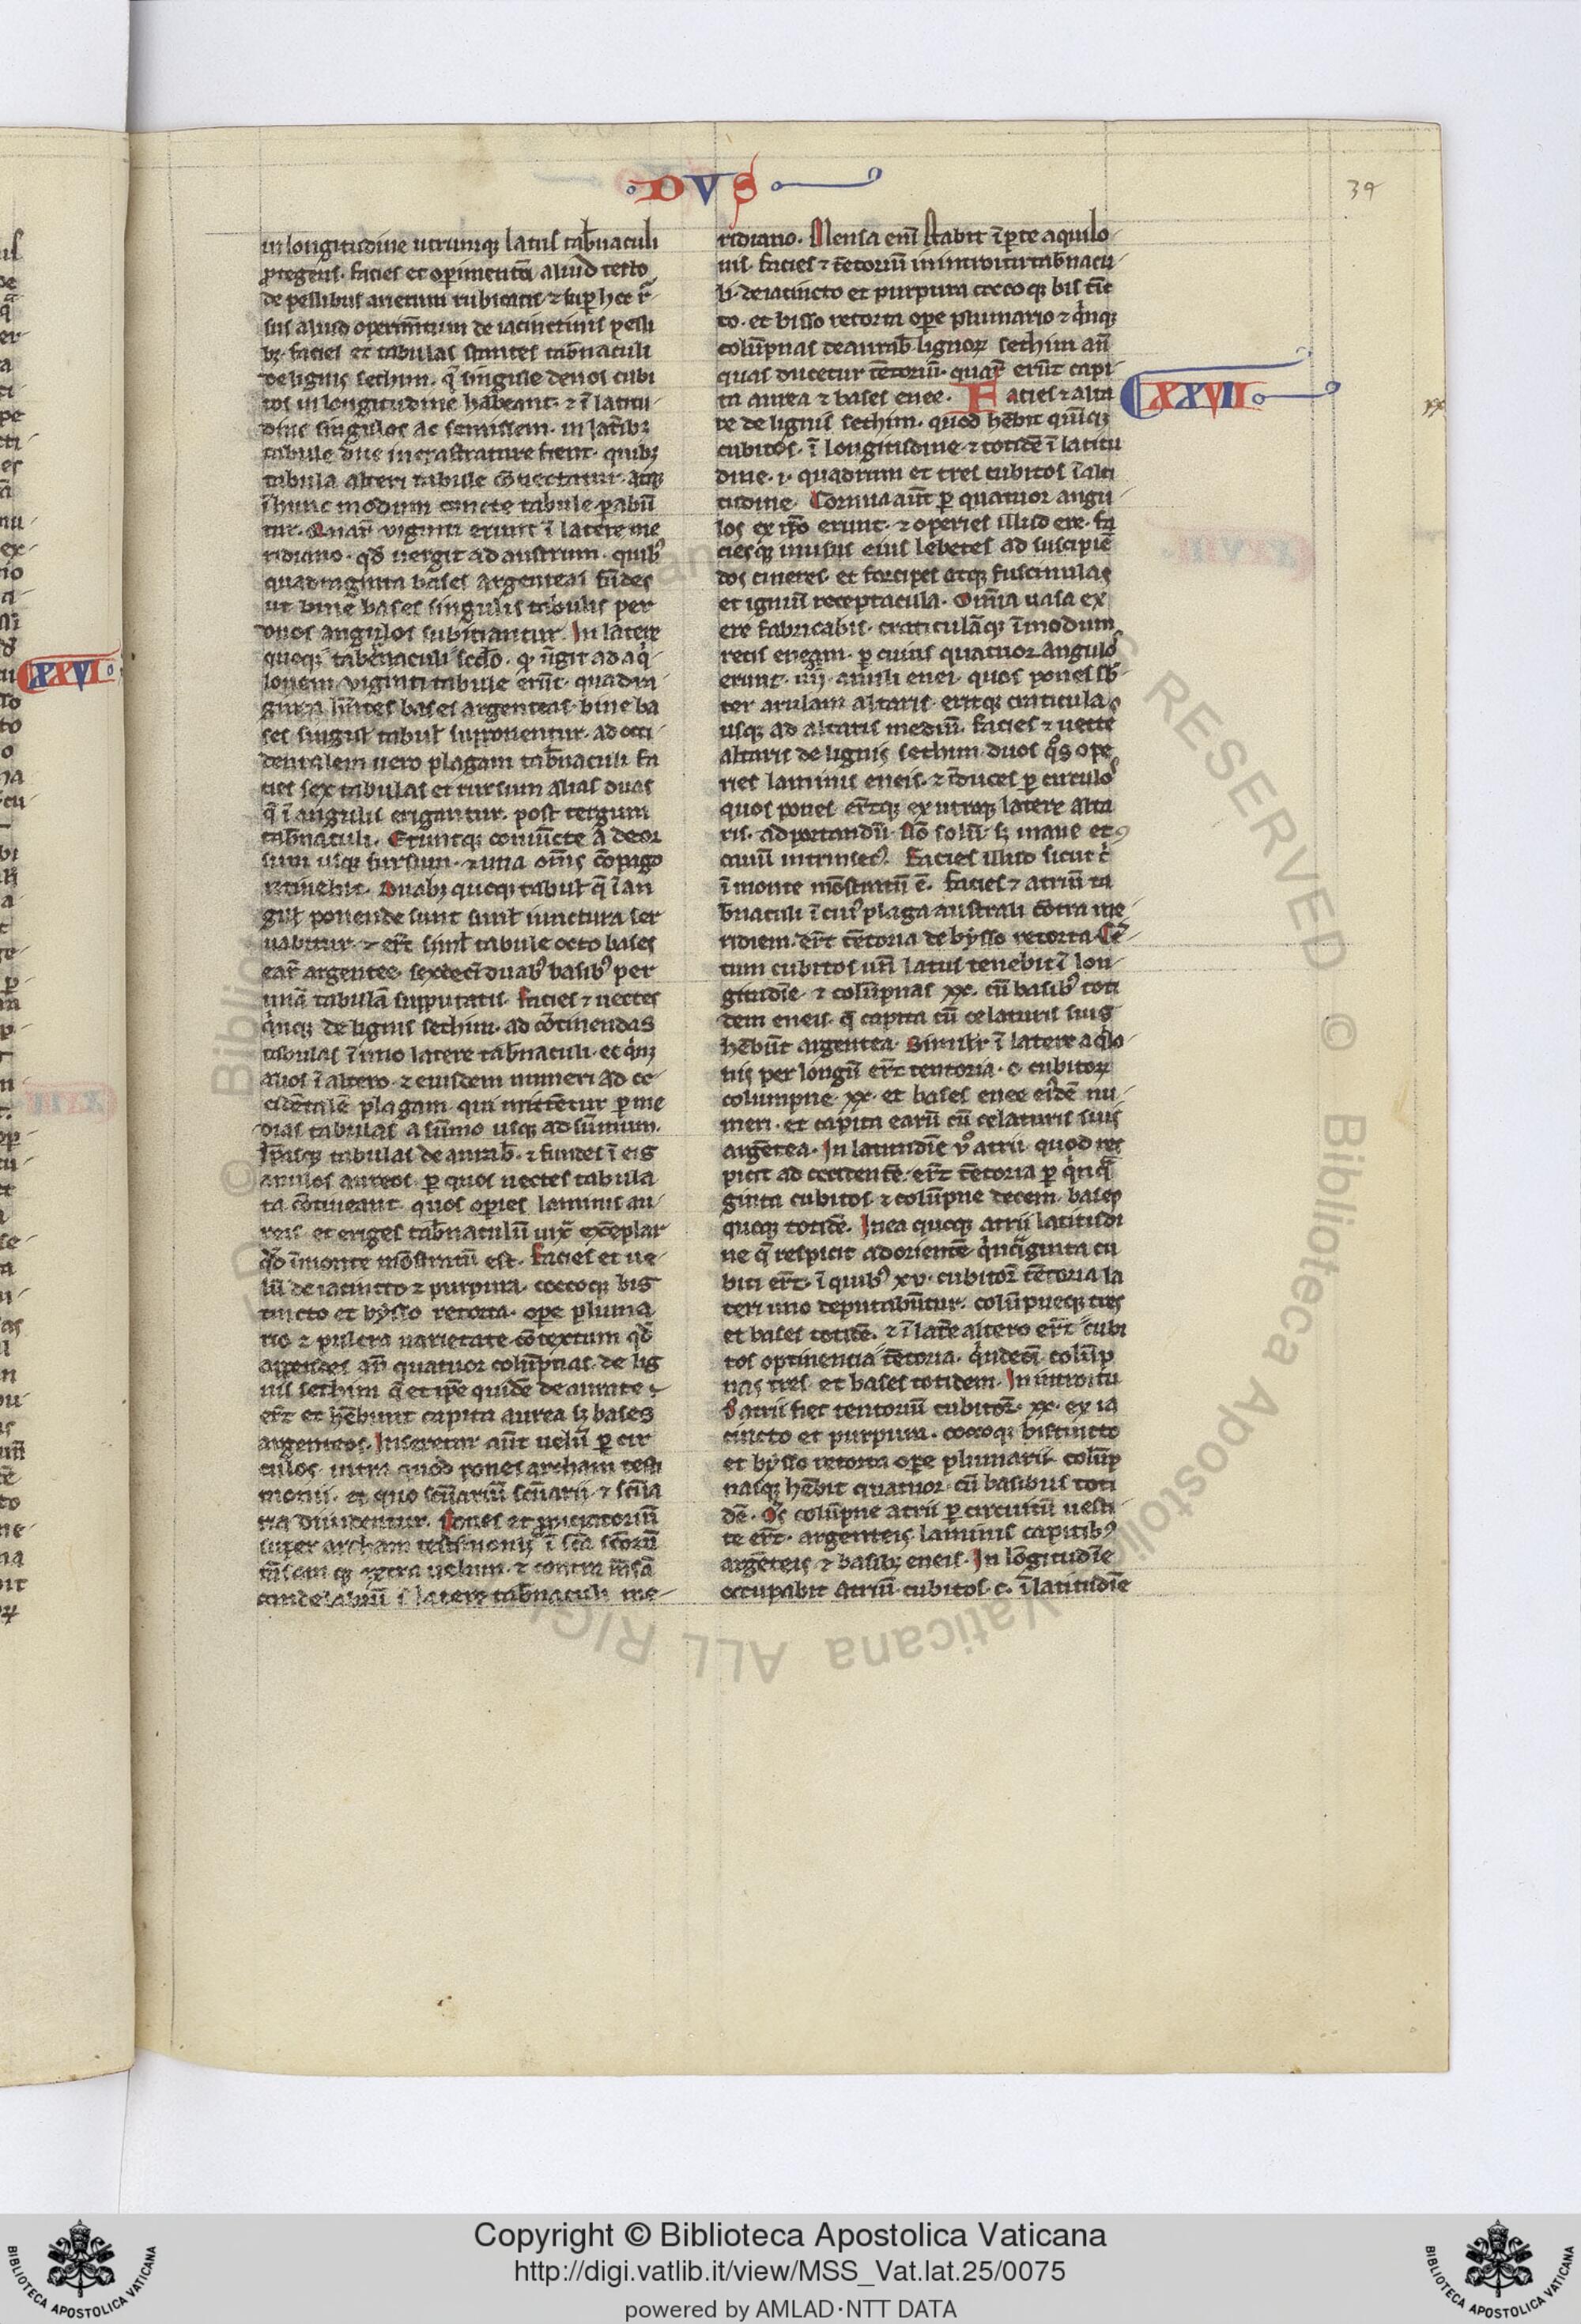 DVS
39
in longitudine utrumq; latus tab̄naculi
ꝓtegens. facies et opimentū aliud tecto
de pellibus arietum rubicatis ⁊ suꝑ hoc r̄
sus aliud operim̄tum de iacinctinis pelli
bꝫ. facies et tabulas stantes tab̄naculi
de lignis sethim. q̄ singule denos cubi
tos in longitudine habeant. ⁊ ī latitu
dine singulos ac semissem. in lat̄ibꝫ
tabule due incrastrature fient. quibꝫ
tabula alteri tabule ꝯnectatur. atqꝫ
ī hunc modum cuncte tabule ꝑabūt
tur. Quaꝝ viginti erunt ī latere me
ridiano. qd̄ uergit ad austrum. quibꝰ
quadraginta bases argenteas fūdes
ut bine bases singulis tabulis per
duos angulos subitiantur. In latere
quoqꝫ tab̄naculi scd̄o. qd̄ ūgit ad aq̇
lonem viginti tabule erūt. quadra
ginta hn̄tes bases argenteas. bine ba
ses singul̄ tabul̄ supponentur. ad occi
dentalem uero plagam tab̄naculi fa
cies sex tabulas et rursum alias duas
q̄ ī angulis erigantur. post tergum
tab̄naculi. Eruntqꝫ coniūcte a deor
sum usqꝫ sursum. ⁊ una om̄s cōpago
retinebit. Duabꝫ quoqꝫ tabul̄ q̄ ī an
gul̄ ponende sunt simil̄ iunctura ser
uabitur. ⁊ er̄t siml̄ tabule octo bases
eaꝝ argentee. sexdecī duabꝰ basibꝰ per
unā tabulā supputatis. Facies ⁊ uectes
q̇nqꝫ de lignis sethim. ad cōtinendas
tabulas ī uno latere tab̄naculi. et q̇nqꝫ
alios ī altero. ⁊ eiusdem numeri ad oc
cidētalē plagam. qui mittētur ꝑ me
dias tabulas a sūmo usqꝫ ad sūmum.
Ip̄asqꝫ tabulas deaurab̄. ⁊ fundes ī eis
anulos aureos. ꝑ quos uectes tabula
ta cōtineant. quos opies laminis au
reis. et eriges tab̄naculū iux̄ exēplar
qd̄ ī monte mōstratū est. Facies et ue
lū de iacincto ⁊ purpura. coccoqꝫ bis
tincto et bysso retorta. ope pluma
rio ⁊ pulcra uarietate cōtextum qd̄
appendes an̄ quatuor colūpnas. de lig
nis sethim q̄ et ip̄e quidē deaurate
er̄t et hēbunt capita aurea sꝫ bases
argenteas. Inseretur aūt uelū ꝑ cir
culos. intra quod pones archam testi
monii. et quo sc̄uariū sc̄uarii ⁊ sc̄ua
ria diuidentur. Pones et ꝓpiciatoriū
super archam testimonij ī sc̄a sc̄oꝝ
m̄sam qꝫ extra uelum. ⁊ contra m̄sā
candelabrū ī latere tab̄naculi me
ridiano. Mensa enī stabit ī ꝑte aquilo
nis. facies ⁊ tētoriū in introitu tab̄nacu
li. de iacincto et purpura coccoqꝫ bis tīc
to. et bisso retorta ope plumario ⁊ q̇nqꝫ
colūpnas deaurab̄ lignoꝝ sethim an̄
quas ducetur tētoriū. quaꝝ erūt capi
ta aurea ⁊ bases enee. Facies ⁊ alta
XXVII
re de lignis sethim. quod hēbit quīqꝫ
cubitos. ī longitudine. ⁊ totidē ī latitu
dine. i. quadrum et tres cubitos ī alti
tudine. Cornua aūt ꝑ quatuor angu
los ex ip̄o erunt. ⁊ operies illud ere. fa
ciesqꝫ in usus eius lebetes ad suscipiē
dos cineres. et forcipes atqꝫ fuscinulas
et igniū receptacula. Omīa uasa ex
ere fabricabis. craticulāqꝫ ī modum
retis eneam. ꝑ cuius quatuor angulos
erunt. iiij. anuli enei. quos pones sb̄
ter arulam altaris. eritqꝫ craticula
usqꝫ ad altaris mediū. Facies ⁊ uecte
altaris de lignis sethim duos q̇s ope
ries laminis eneis. ⁊ īduces ꝑ circulos
quos pones er̄tqꝫ ex utroqꝫ latere alta
ris. ad portandū. Nō solū. sꝫ inane et
cauū intrinsecꝰ. Facies illud sicut t̄
ī monte mōstratū ē. Facies ⁊ atriū ta
b̄naculi ī cuiꝰ plaga australi cōtra me
ridiem. er̄t tētoria de bysso retorta. Cē
tum cubitos un̄ latus tenebit ī lon
gitudīe. ⁊ colūpnas xx. cū basibꝰ toti
dem eneis. q̄ capita cū celaturis suis
hēbūt argentea. Simil̄r ī latere aq̇lo
nis per longū er̄t tentoria. c. cubitoꝝ
columpne. xx. et bases enee eidē nu
meri. et capita earū cū celaturis suis
argētea. In latitudīe ṽo atrii. quod res
picit ad occidentē. er̄t tētoria ꝑ q̇nq̄
ginta cubitos. ⁊ colūpne decem. bases
quoqꝫ totidē. In ea quoqꝫ atrij latitudi
ne q̄ respicit ad orientē q̇nq̄ginta cu
biti er̄t. ī quibꝰ xv. cubitoꝝ tētoria la
teri uno deputabūtur. colūpneqꝫ tres
et bases totidē. ⁊ ī lat̄e altero er̄t cubi
tos optinentia tētoria. q̇ndecī. colūp
nas tres. et bases totidem. In introitu
ṽ atrii fiet tentoriū cubitoꝝ. xx. ex ia
cincto et purpura. coccoqꝫ bistincto
et bysso retorta ope plumarii. colūp
nasqꝫ hēbit quatuor. cū basibus toti
dē. Oēs colūpne atrii ꝑ circuitū uesti
te er̄t. argenteis laminis capitibꝰ
argēteis ⁊ basibꝫ eneis. In lōgitudīe
occupabit atriū. cubitos. c. ī latitudīe
XXVI
Copyright © Biblioteca Apostolica Vaticana
http://digi.vatlib.it/view/MSS_Vat.lat.25/0075
powered by AMLAD·NTT DATA
BIBLIOTECA APOSTOLICA VATICANA
BIBLIOTECA APOSTOLICA VATICANA